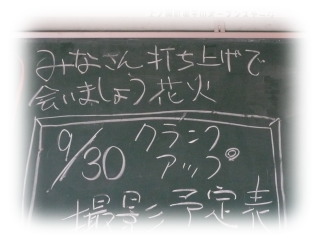 みなさん打ち上げで
会いましょう花火
9/30 クランク
アップ◎
撮影予定表